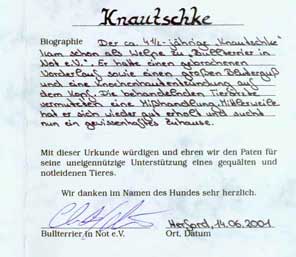 Knautschke
Biographie Der ca. 4 1/2-jährige "Knautschke"
kam schon als Welpe zu "Bullterrier in
Not e.V.". Er hatte einen gebrochenen
Vorderlauf sowie einen großen Bluterguß
und eine Knochenhautentzündung auf
dem Kopf. Die behandelnden Tierärzte
vermuteten eine Mißhandlung. Mittlerweile
hat er sich wieder gut erholt und sucht
nun ein gewissenhaftes Zuhause.
Mit dieser Urkunde würdigen und ehren wir den Paten für
seine uneigennützige Unterstützung eines gequälten und
notleidenen Tieres.
Wir danken im Namen des Hundes sehr herzlich.
Herford, 14.06.2001
Bullterrier in Not e.V. Ort, Datum